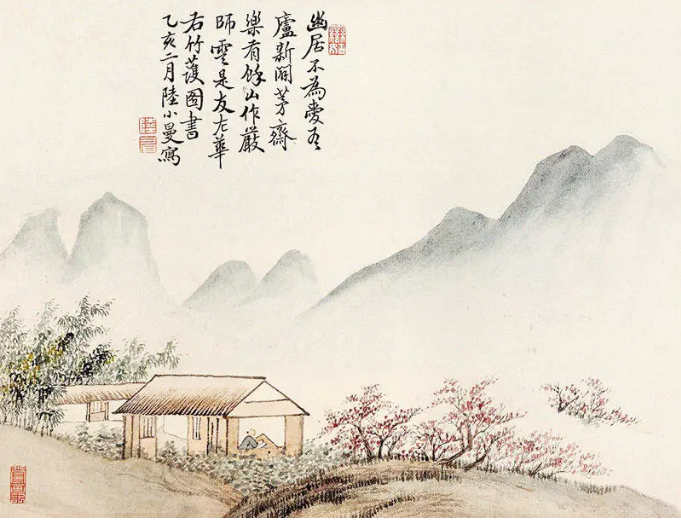 幽居不為愛吾
廬新闢芳齋
樂有餘山作嚴
師雲是友左華
右竹護圖書
乙亥二月陸小曼寫